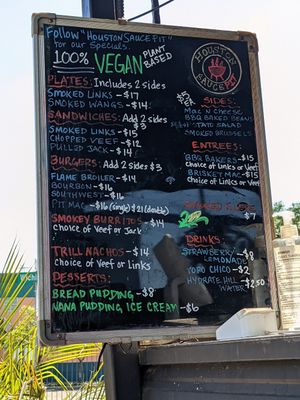 Follow "HOUSTONSAUCEPIT"
for our Specials.
100% VEGAN PLANT BASED
PLATES: Includes 2 sides
SMOKED LINKS - $17
SMOKED WANGS - $14
SANDWICHES: Add 2 sides
$3
SMOKED LINKS - $15
CHOPPED VEEF - $12
PULLED JACK - $14
BURGERS: Add 2 sides $3
FLAME BROILER - $14
BOURBON - $16
SOUTHWEST - $16
PIT MAC - $16 (single) $21 (double)
SMOKEY BURRITOS - $14
choice of Veef or Jack
TRILL NACHOS - $14
choice of Veef or Links
DESSERTS:
BREAD PUDDING - $8
NANA PUDDING ICE CREAM - $6
HOUSTON
SAUCE PIT
$5 PER
SIDES:
MAC N CHEESE
BBQ BAKED BEANS
TATO SALAD
SMOKED BRUSSELS
ENTREES:
BBQ BAKERS - $15
Choice of Links or Veef
BRISKET MAC - $15
Choice of Links or Veef
$7
DRINKS:
STRAWBERRY - $8
LEMONADE
TOPO CHICO - $2
WATER - $2.50